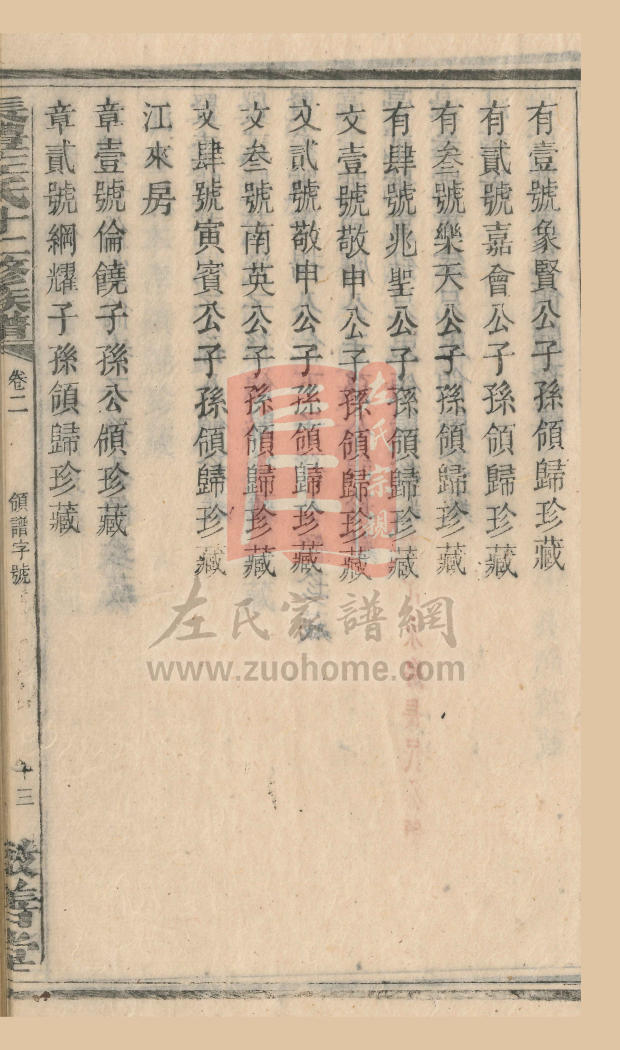 有壹號象賢公子孫領歸珍藏
有貳號嘉會公子孫領歸珍藏
有叁號樂天公子孫領歸珍藏
有肆號兆聖公子孫領歸珍藏
文壹號敬申公子孫領歸珍藏
文貳號敬申公子孫領歸珍藏
文叁號南英公子孫領歸珍藏
文肆號寅賓公子孫領歸珍藏
江來房
章壹號倫饒子孫公領珍藏
章貳號綱耀子孫領歸珍藏
氏十二修族譜
卷二
領譜字號
十三
善堂
左氏宗親
左氏家譜網
www.zuohome.com